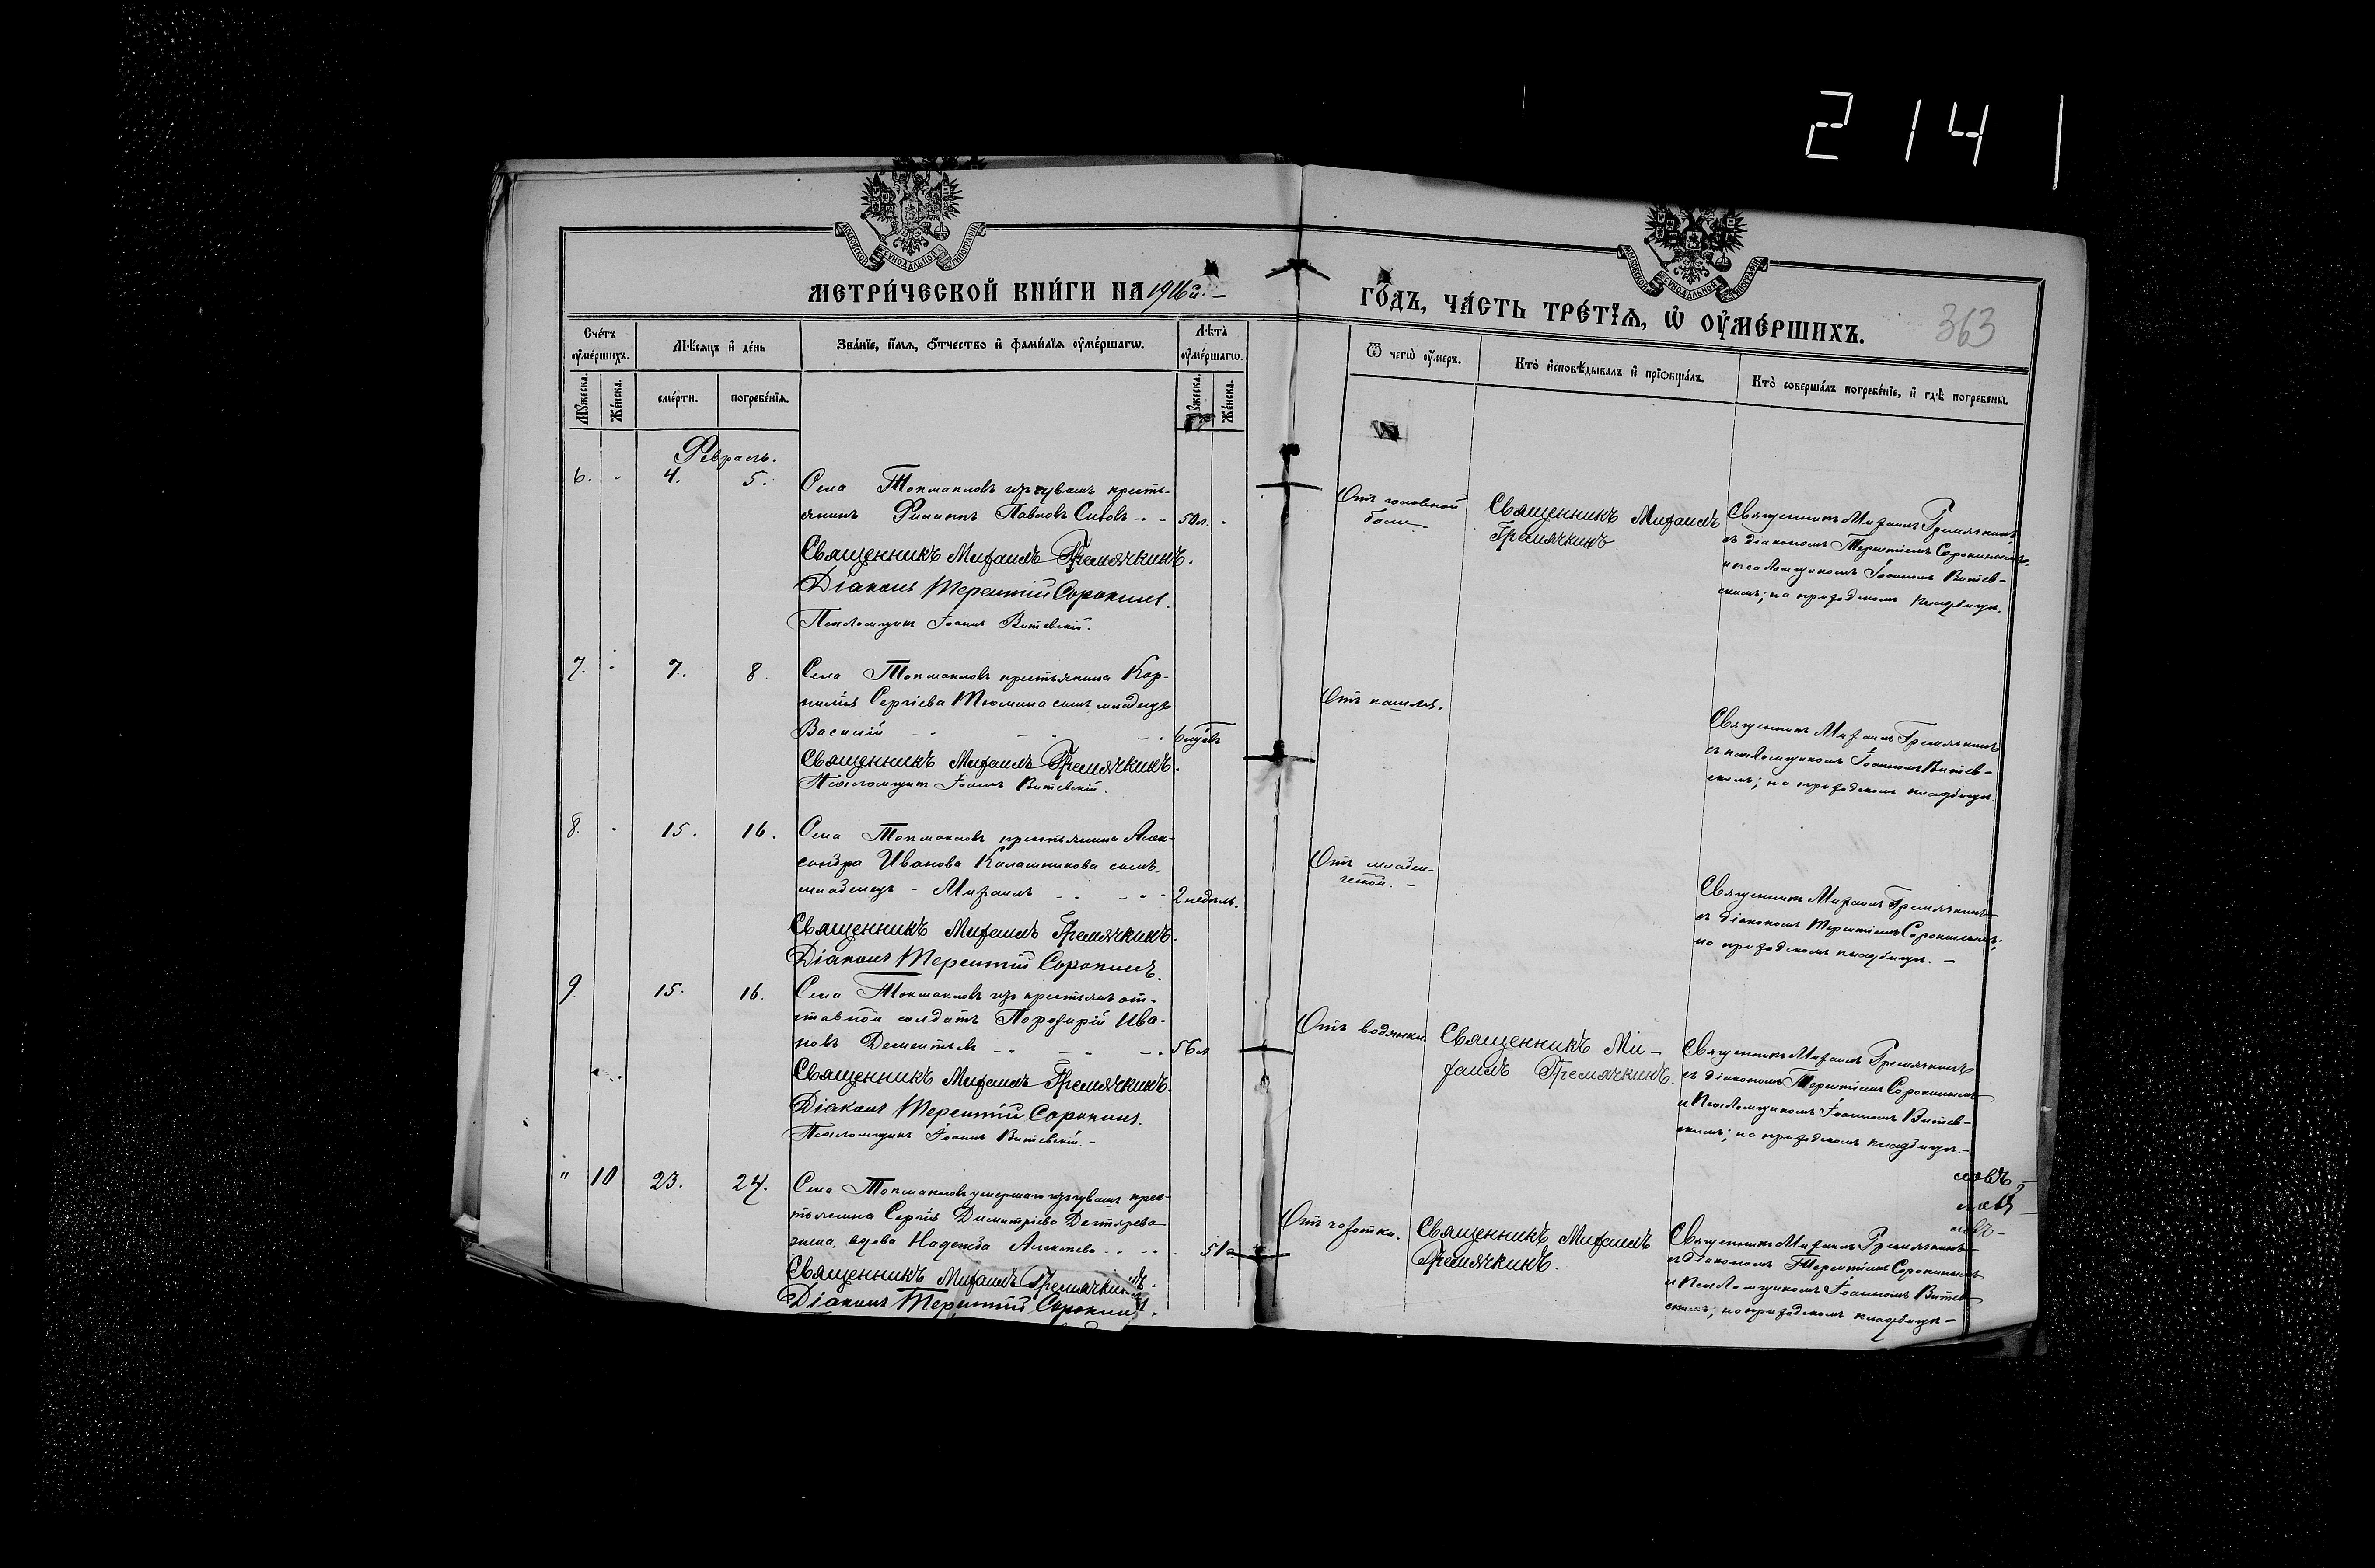 2141
МОСКОВСКОЙ СѴНОДАЛЬНОЙ ТИПОГРАФІИ
МОСКОВСКОЙ СѴНОДАЛЬНОЙ ТИПОГРАФІИ
МЕТРИ́ЧЕСКОЙ КНИ́ГИ НА 1916й.-
ГО́ДЪ, ЧА́СТЬ ТРЕ́ТЇѦ, Ѡ҆ ОУ҆МЕ́РШИХЪ.
363
Сче́тъ оу҆ме́ршихъ.
Мꙋ́жеска.
Же́нска.
Мѣ́сѧцъ и҆ де́нь
сме́рти.
погребе́нїѧ.
Зва́нїе, и҆́мѧ, ѻ҆́тчество и҆ фами́лїѧ оу҆ме́ршагѡ.
Лѣ́та оу҆ме́ршагѡ.
Мꙋ́жеска.
Же́нска.
Ѿ чегѡ̀ оу҆́меръ.
Кто̀ и҆сповѣ́дывалъ и҆ прїѻбща́лъ.
Кто̀ соверша́лъ погребе́нїе, и҆ гдѣ̀ погребены̀.
Февраль.
6. - 4. 5.
Села Токмакловъ изъ чувашъ кресть-
янинъ Филиппъ Павловъ Сивовъ - - 50 л.
Священникъ Михаилъ Гремячкинъ.
Діаконъ Терентій Сорокинъ.
Псаломщикъ Іоаннъ Витевскій.
Отъ головной
боли
Священникъ Михаилъ
Гремячкинъ
Священникъ Михаилъ Гремячкинъ
съ діакономъ Терентіемъ Сорокинымъ
и псаломщикомъ Іоанномъ Витев-
скимъ; на приходскомъ кладбищѣ.
7. - 7. 8.
Села Токмакловъ крестьянина Кор-
нилія Сергіева Тюмина сынъ младенецъ
Василій - - -
Священникъ Михаилъ Гремячкинъ.
Псаломщикъ Іоаннъ Витевскій.
Отъ кашля.
Священникъ Михаилъ Гремячкинъ
съ псаломщикомъ Іоанномъ Витев-
скимъ; на приходскомъ кладбищѣ.
8. - 15. 16.
Села Токмакловъ крестьянина Алек-
сандра Иванова Калашникова сынъ,
младенецъ - Михаилъ - - - 2 недѣль.
Священникъ Михаилъ Гремячкинъ.
Діаконъ Терентій Сорокинъ.
Отъ младен-
ческой. -
Священникъ Михаилъ Гремячкинъ
съ діакономъ Терентіемъ Сорокинымъ;
на приходскомъ кладбищѣ. -
9. 15. 16.
Села Токмакловъ изъ крестьянъ от-
ставной солдатъ Порфирій Ива-
новъ Дементьевъ - - - 56 л
Священникъ Михаилъ Гремячкинъ.
Діаконъ Терентій Сорокинъ.
Псаломщикъ Іоаннъ Витевскій. -
Отъ водянки.
Священникъ Ми-
хаилъ Гремячкинъ.
Священникъ Михаилъ Гремячкинъ
съ діакономъ Терентіемъ Сорокинымъ
и Псаломщикомъ Іоанномъ Витев-
скимъ; на приходскомъ кладбищѣ. -
" 10 23. 24.
Села Токмакловъ умершаго изъ чувашъ крес-
тьянина Сергія Димитріева Дегтярева
жена, вдова Надежда Алексѣева - - - 51
Священникъ Михаилъ Гремячкинъ.
Діаконъ Терентій Сорокинъ.
Отъ чахотки.
Священникъ Михаилъ
Гремячкинъ.
Священникъ Михаилъ Гремячкинъ
съ діакономъ Терентіемъ Сорокинымъ
и Псаломщикомъ Іоанномъ Витев-
скимъ; на приходскомъ кладбищѣ -